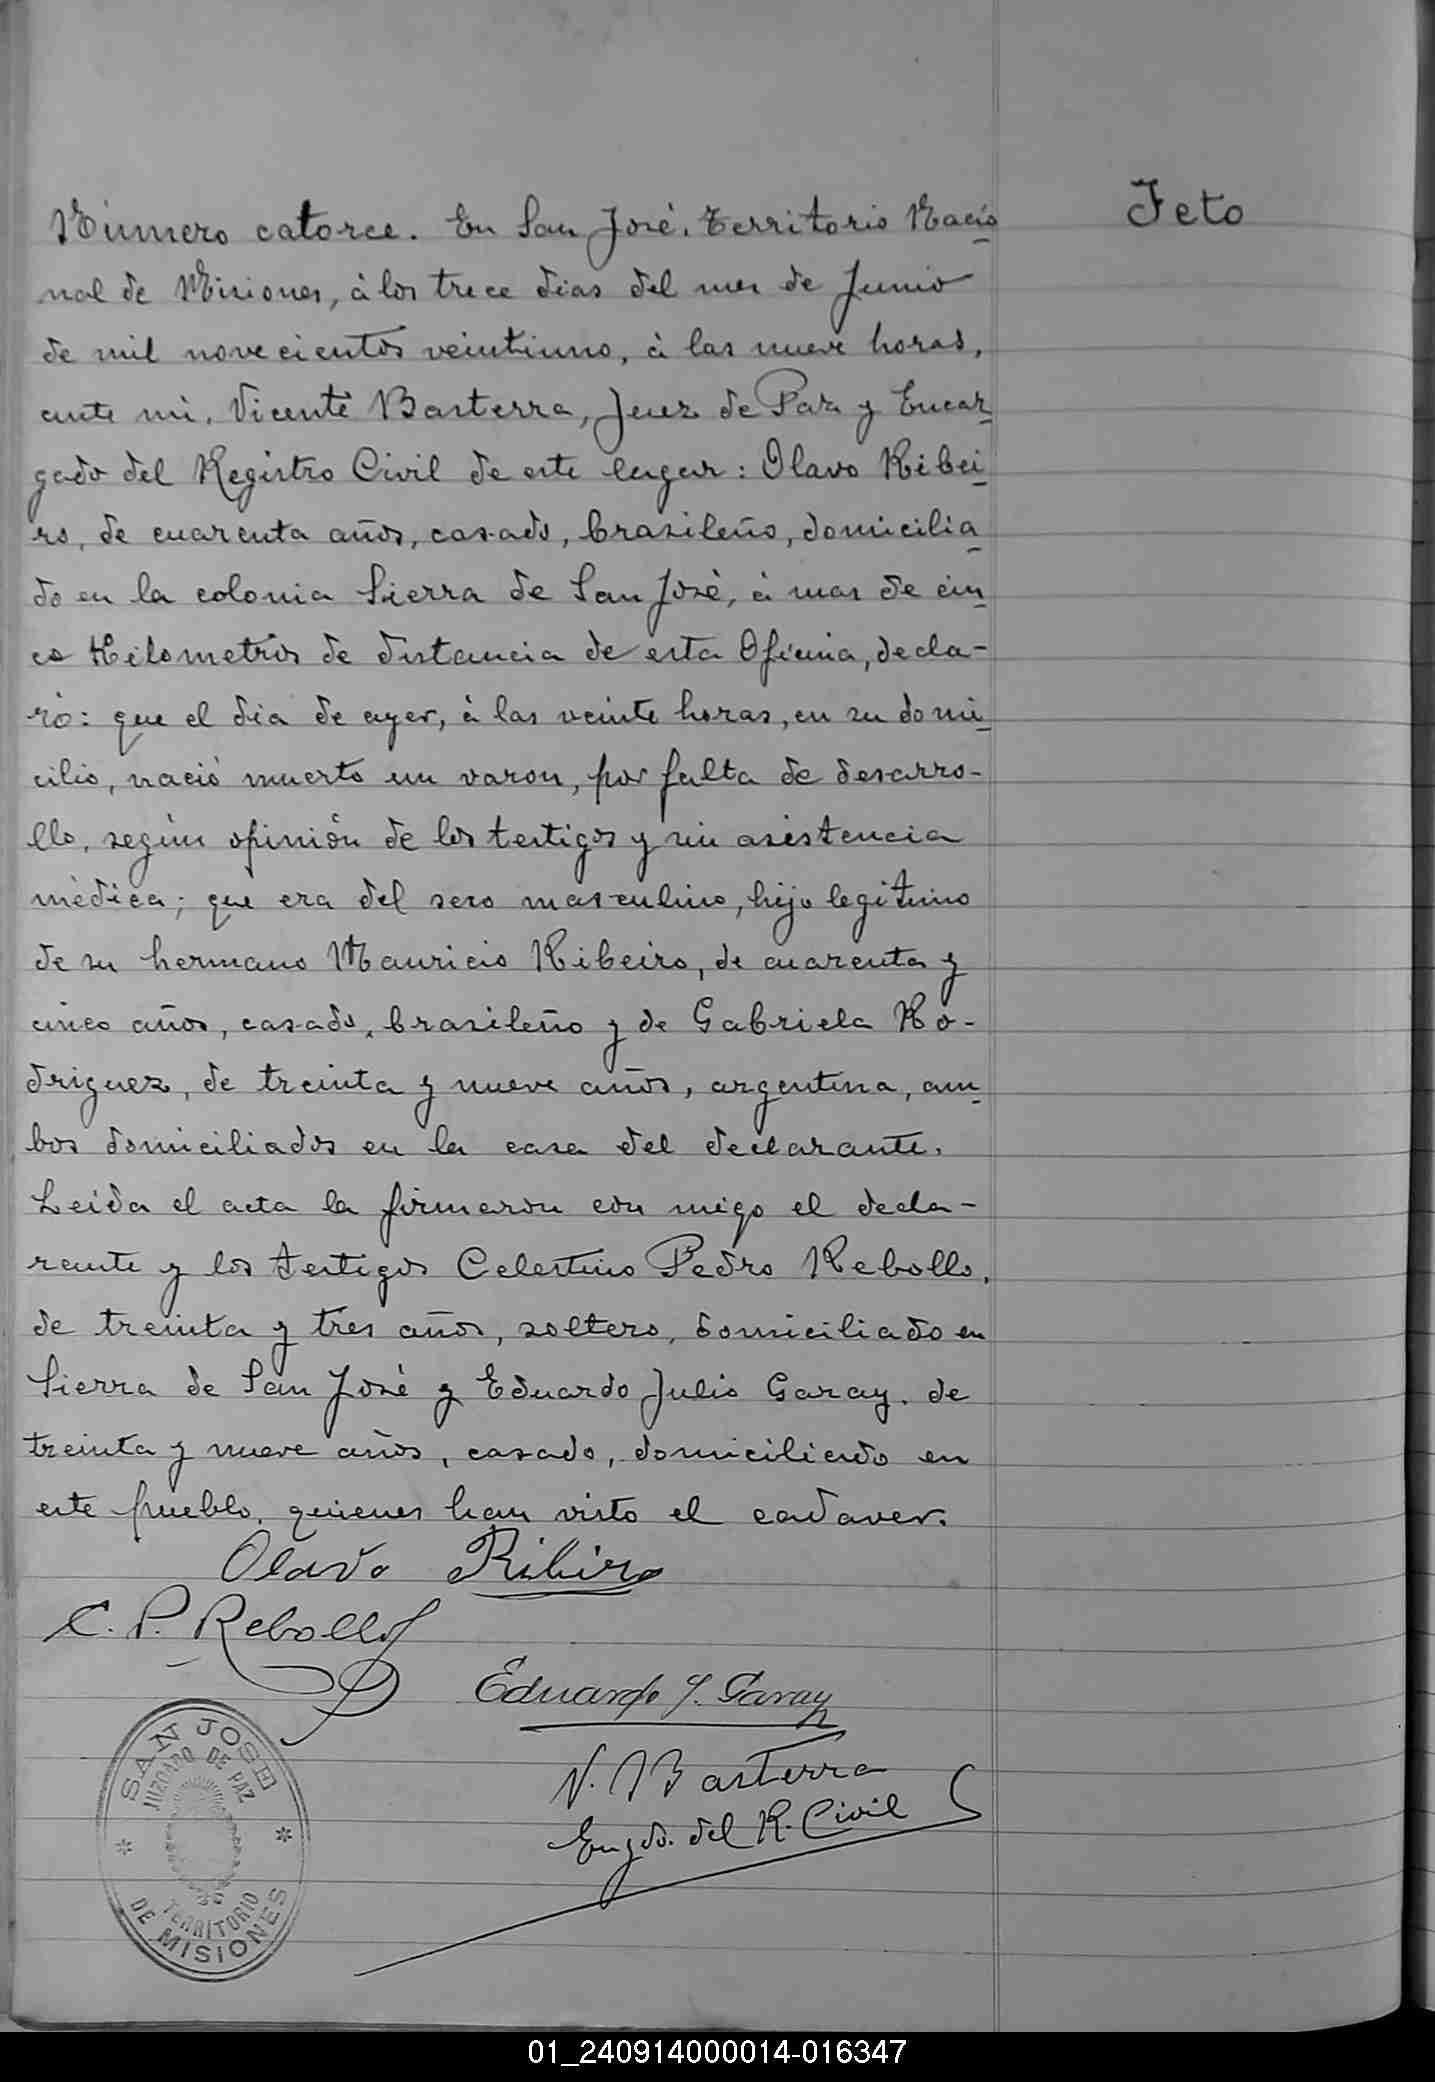 Feto
Número catorce. En San José, Territorio Nacio
nal de Misiones, à los trece dias del mes de Junio
de mil novecientos veintiuno, à las nueve horas,
ante mi, Vicente Basterra, Juez de Paz y Encar
gado del Registro Civil de este lugar: Olavo Ribei
ro, de cuarenta años, casado, brasileño, domicilia
do en la colonia Sierra de San José, à mas de cin
co Kilometros de distancia de esta Oficina, decla-
ró: que el dia de ayer, à las veinte horas, en su domi
cilio, nació muerto un varon, por falta de desarro-
llo, según opinión de los testigos y sin asistencia
mèdica; que era del sexo masculino, hijo legitimo
de su hermano Mauricio Ribeiro, de cuarenta y
cinco años, casado, brasileño y de Gabriela Ro-
driguez, de treinta y nueve años, argentina, am
bos domiciliados en la casa del declarante.
Leida el acta la firmaron con migo el decla-
rante y los testigos Celestino Pedro Rebollo,
de treinta y tres años, soltero, domiciliado en
Sierra de San José y Eduardo Julio Garay, de
treinta y nueve años, casado, domiciliado en
este pueblo, quienes han visto el cadaver.
Olavo Ribiro
C. P. Rebollo
Eduardo J. Garay
V. Basterra
Engdo. del R. Civil
SAN JOSE
JUZGADO DE PAZ
TERRITORIO
DE MISIONES
01_240914000014-016347